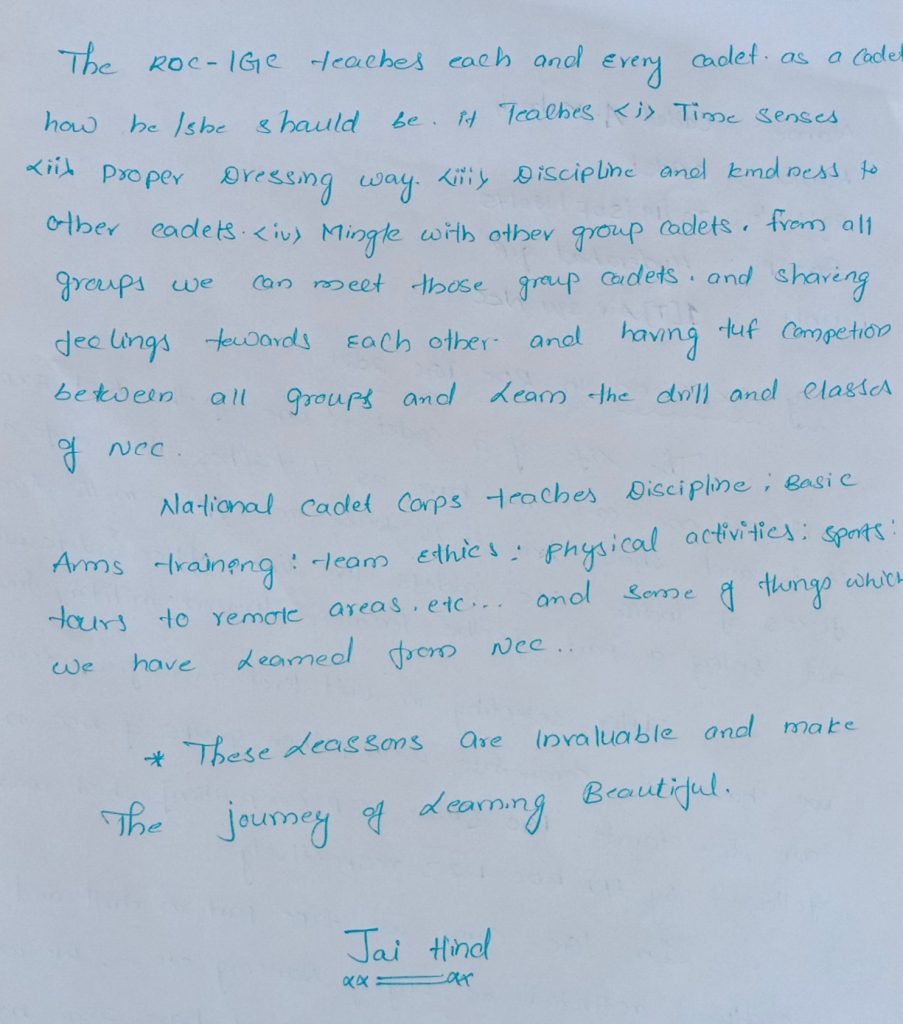 The RDC-IGC teaches each and Every cadet. as a Cadet
how he/she shauld be. it Teaches <i> Time senses
<ii> proper Dressing way. <iii> Discipline and kindness to
other cadets. <iv> Mingle with other group cadets. from all
groups we can meet those group cadets. and sharing
feelings towards Each other. and having tuf Competion
between all groups and Learn the drill and classes
of NCC.
National Cadet Corps teaches Discipline; Basic
Arms training; team Ethics; physical activities; sports;
tours to remote areas. etc... and some of things which
we have Learned from NCC..
* These Leassons are Invaluable and make
The journey of Learning Beautiful.
Jai Hind